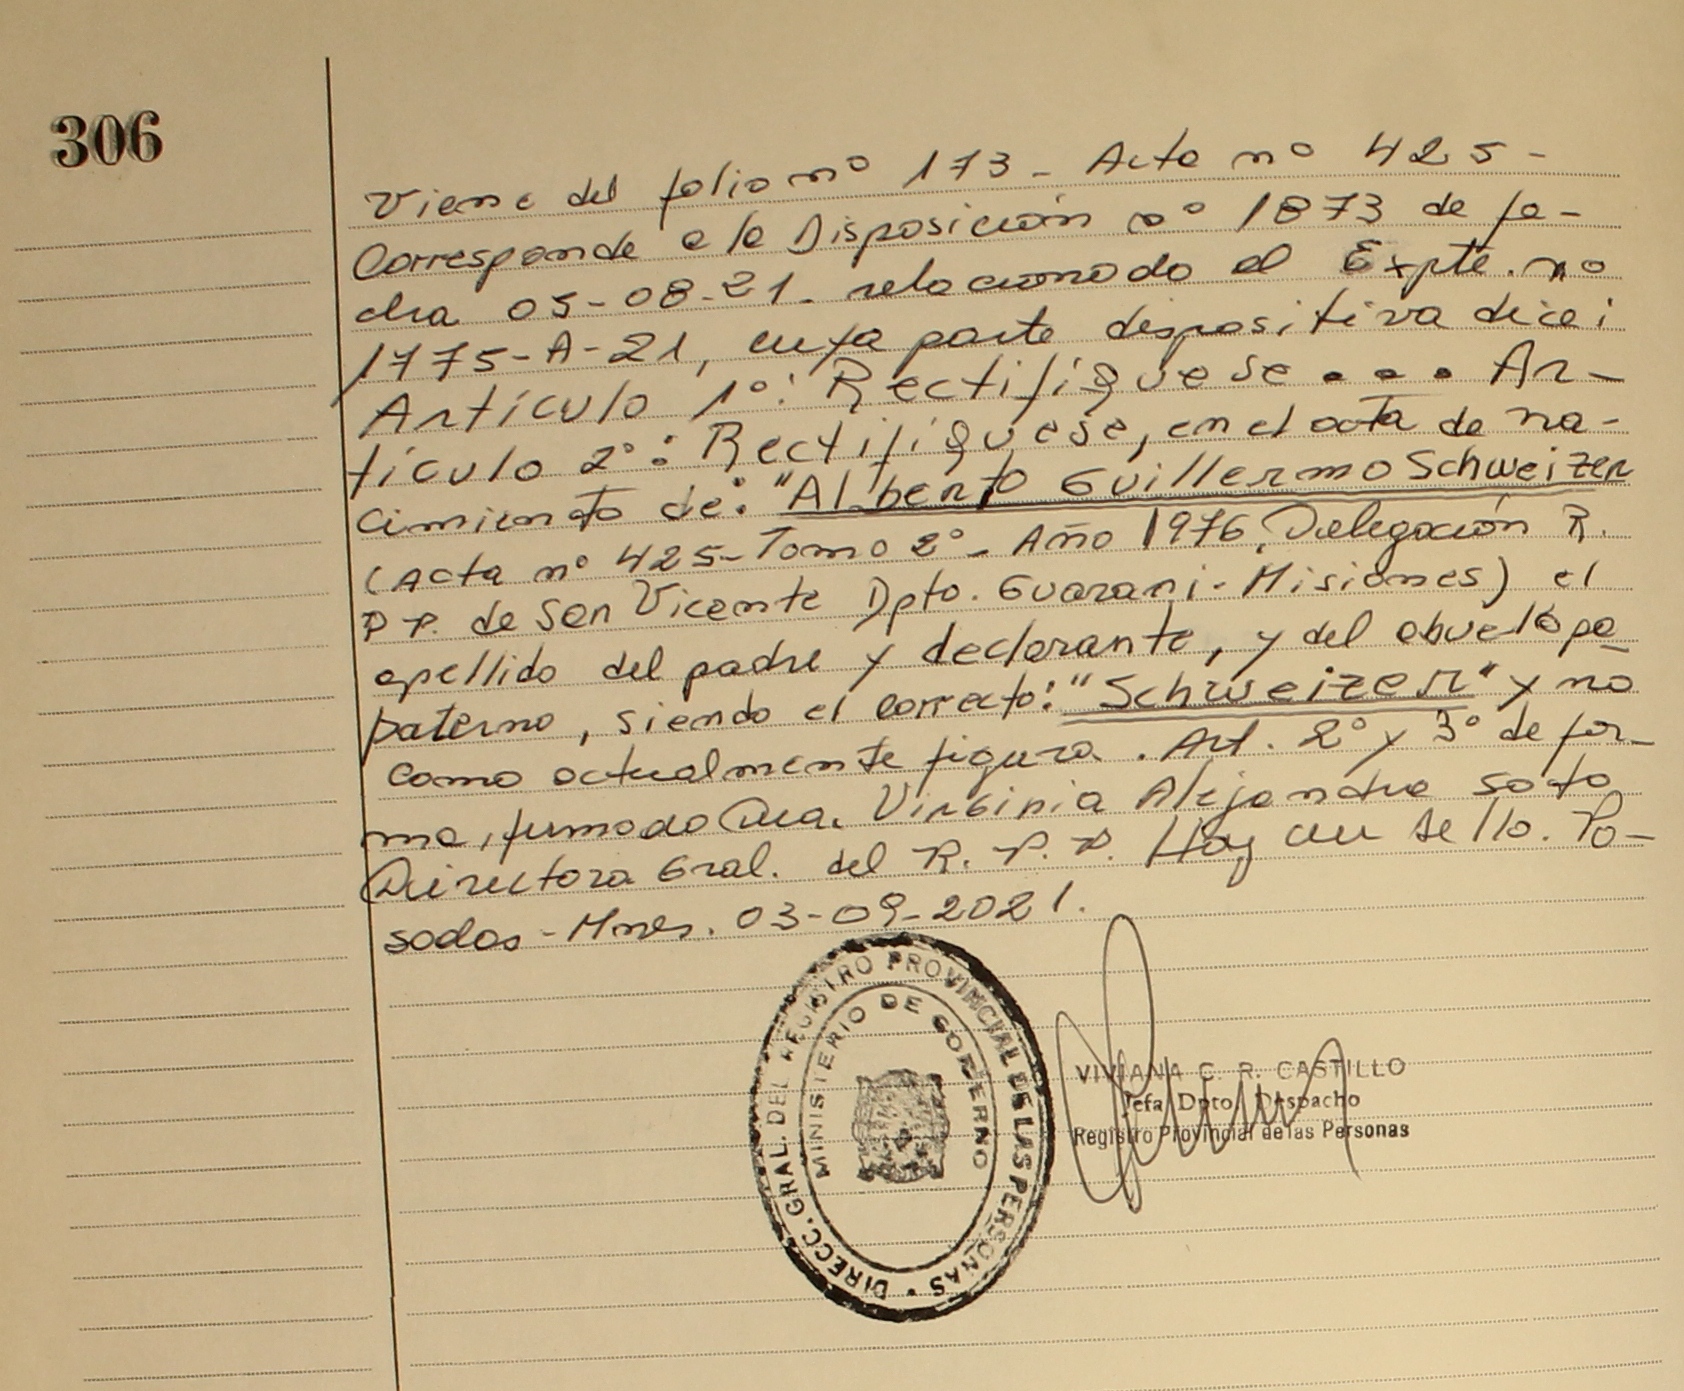 306
Viene del folio nº 173 - Acta nº 425 -
Corresponde a la Disposición nº 1873 de fe-
cha 05-08-21. relacionado al Expte. nº
1775-A-21, cuya parte dispositiva dice:
Artículo 1º: Rectifíquese . . . Ar-
tículo 2º: Rectifíquese, en el acta de na-
cimiento de: "Alberto Guillermo Schweizer
(Acta nº 425 - Tomo 2º - Año 1976, Delegación R.
P.P. de San Vicente Dpto. Guaraní - Misiones) el
apellido del padre y declarante, y del abuelo pa
paterno, siendo el correcto: "Schweizer" y no
como actualmente figura. Art. 2º y 3º de for-
ma, firmado Dra. Virginia Alejandra Soto
Directora Gral. del R. P. P. Hay un sello. Po-
sadas - Mnes. 03-09-2021.
DIRECC. GRAL. DEL REGISTRO PROVINCIAL DE LAS PERSONAS
MINISTERIO DE GOBIERNO
VIVIANA C. R. CASTILLO
Jefa Dpto. Despacho
Registro Provincial de las Personas